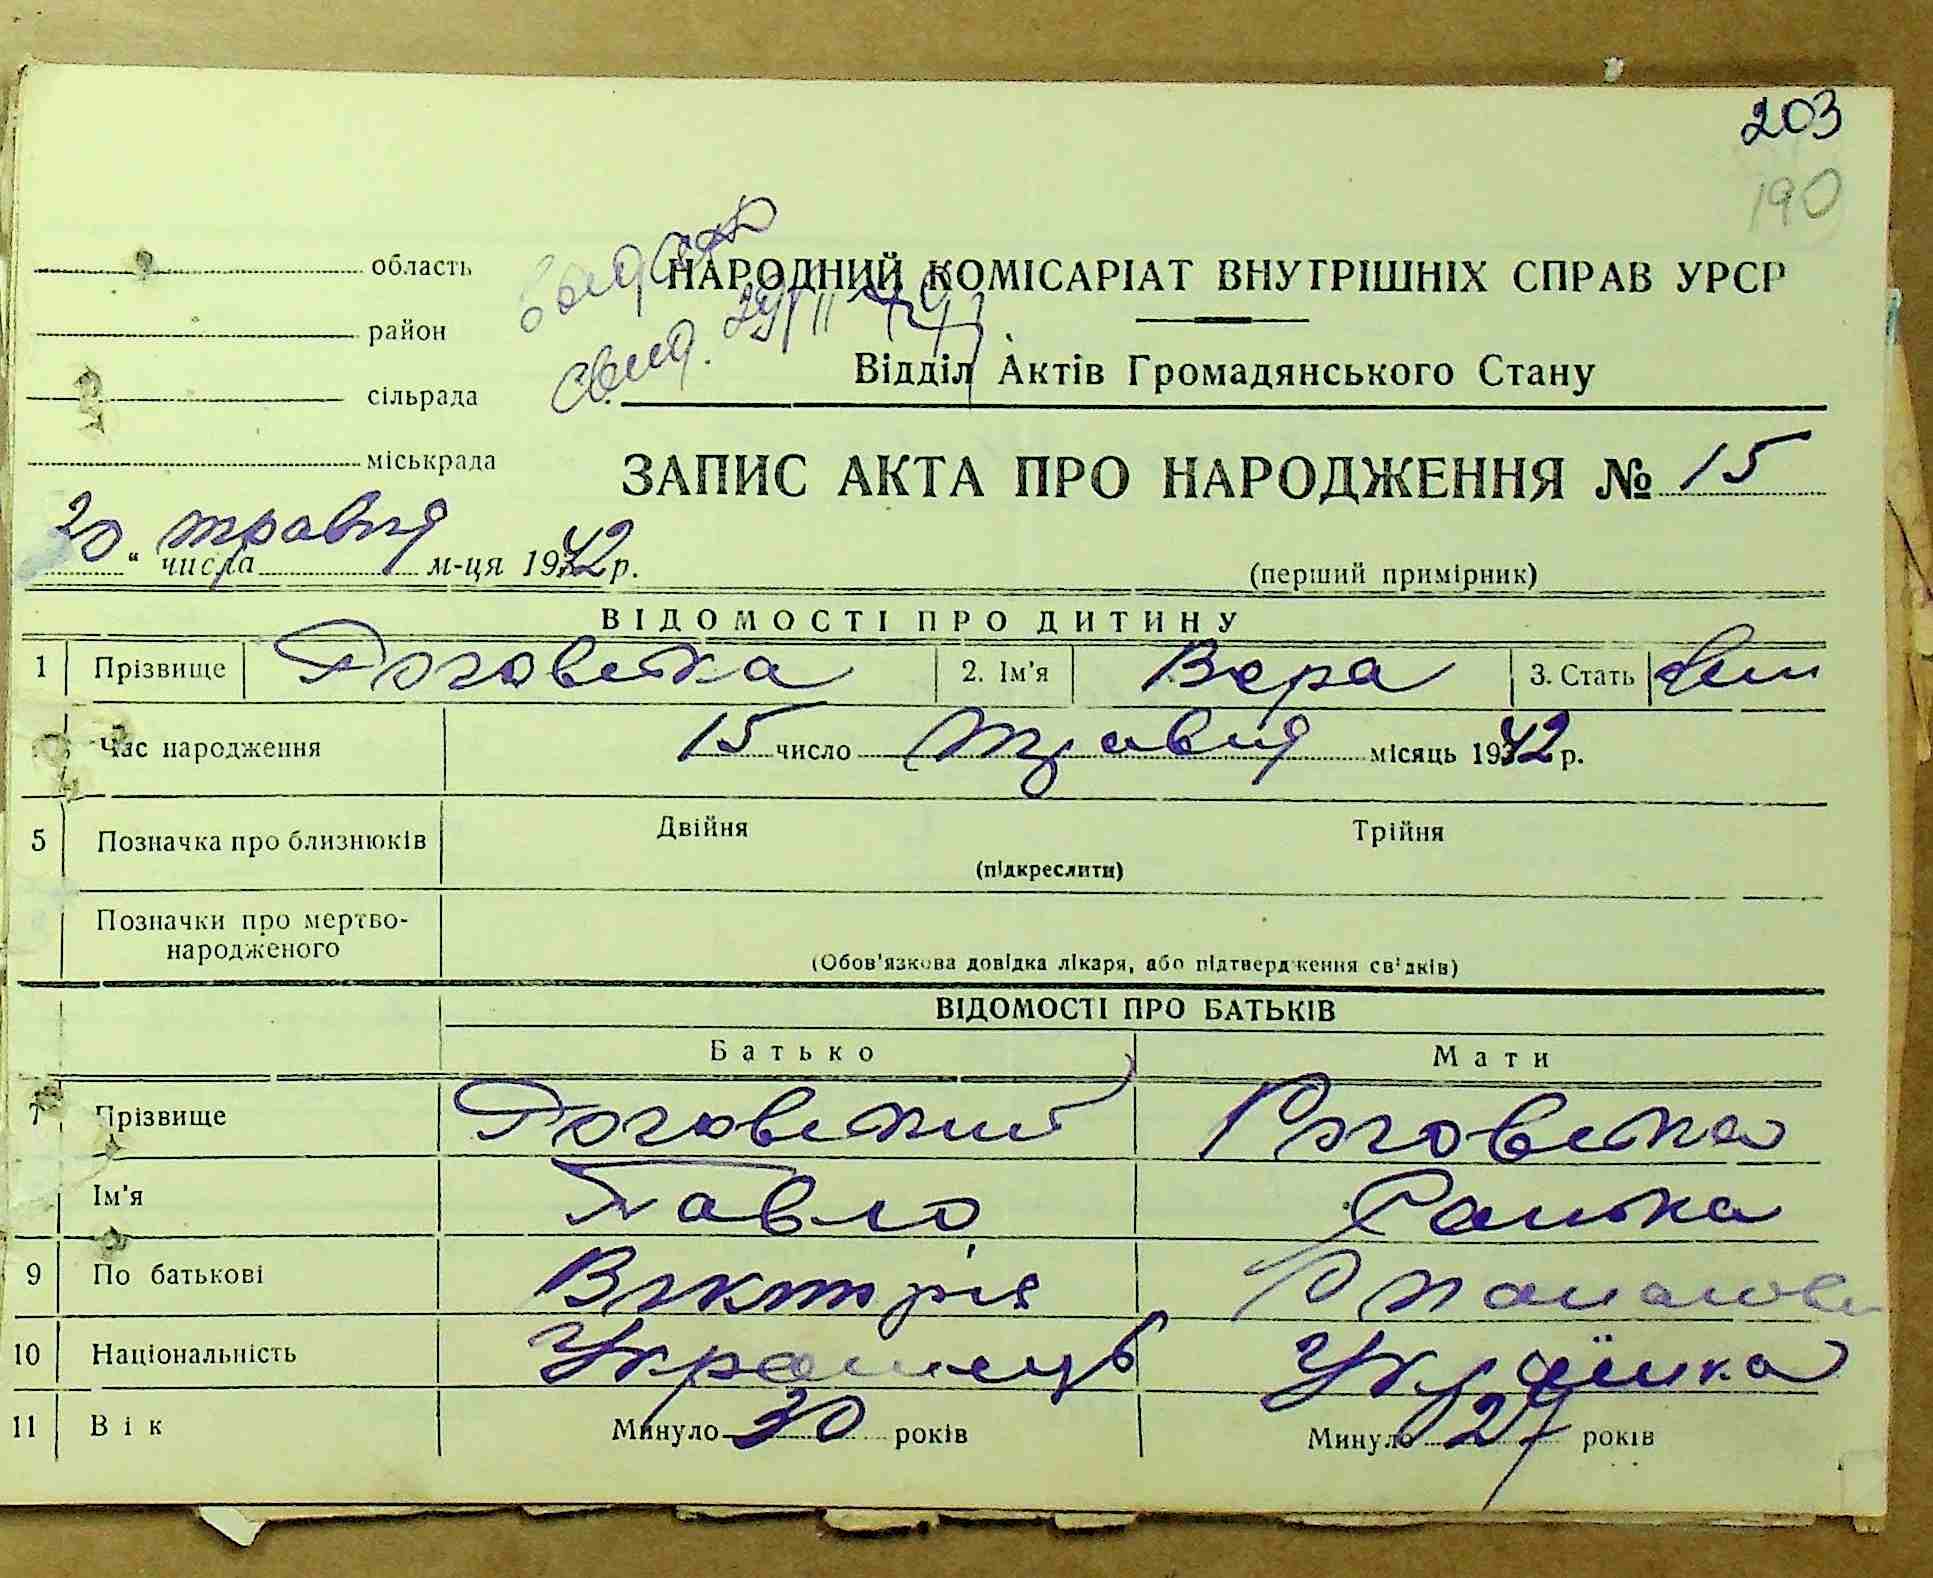 203
190
область
район
сільрада
міськрада
свид.
НАРОДНИЙ КОМІСАРІАТ ВНУТРІШНІХ СПРАВ УРСР
Відділ Актів Громадянського Стану
ЗАПИС АКТА ПРО НАРОДЖЕННЯ № 15
20 " числа травня м-ця 1942 р.
(перший примірник)
ВІДОМОСТІ ПРО ДИТИНУ
1 Прізвище Роговська 2. Ім'я Вера 3. Стать жін
Час народження 15 число травня місяць 1942 р.
5 Позначка про близнюків Двійня Трійня
(підкреслити)
Позначки про мертво-
народженого
(Обов'язкова довідка лікаря, або підтвердження свідків)
ВІДОМОСТІ ПРО БАТЬКІВ
Батько Мати
7 Прізвище Роговський Роговська
Ім'я Павло Ганька
9 По батькові
10 Національність Українець Українка
11 Вік Минуло 30 років Минуло 27 років